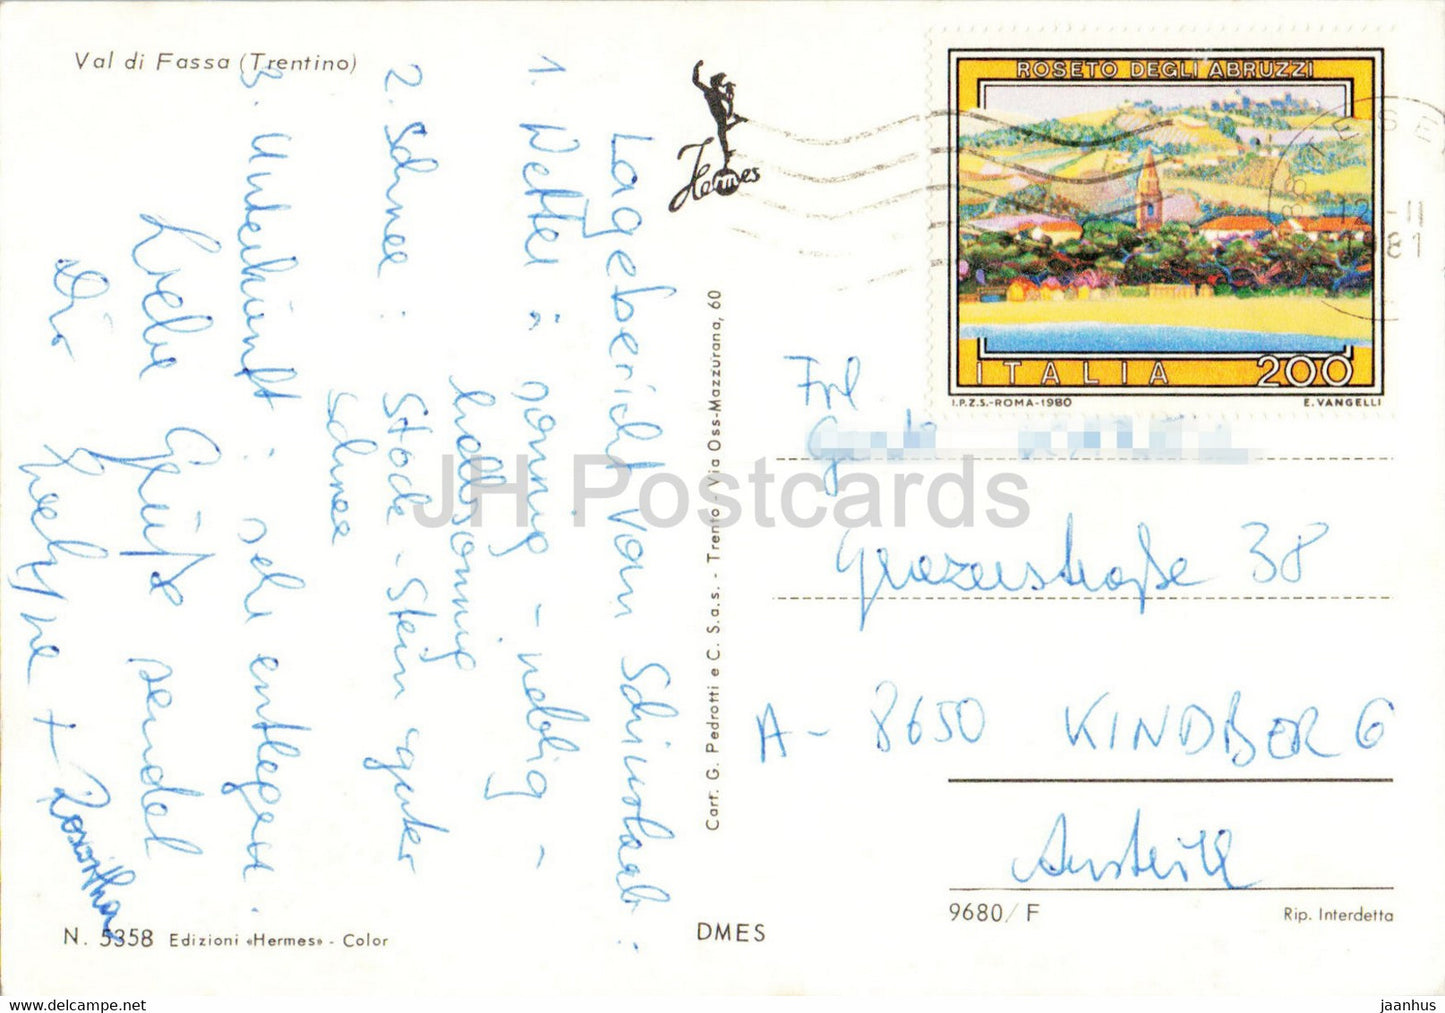 Val di Fassa (Trentino)
Hermes
Lagebericht vom
1. Wetter: sonnig - neblig -
halbsonnig
2. Schnee: Stock-Stein guter
Schnee
3. Unterkünft: sehr entlegen.
Liebe Grüße sendet
Dir
+ Roswitha
N. 5358 Edizioni «Hermes» - Color
Cart. G. Pedrotti e C. S.a.s. - Trento - Via Oss-Mazzurana, 60
DMES
ROSETO DEGLI ABRUZZI
ITALIA 200
I.P.Z.S.-ROMA-1980 E. VANGELLI
12-II
1981
Frl
Grazerstraße 38
A- 8650 KINDBERG
Austria
9680/F
Rip. Interdetta
JH Postcards
www.delcampe.net
jaanhus